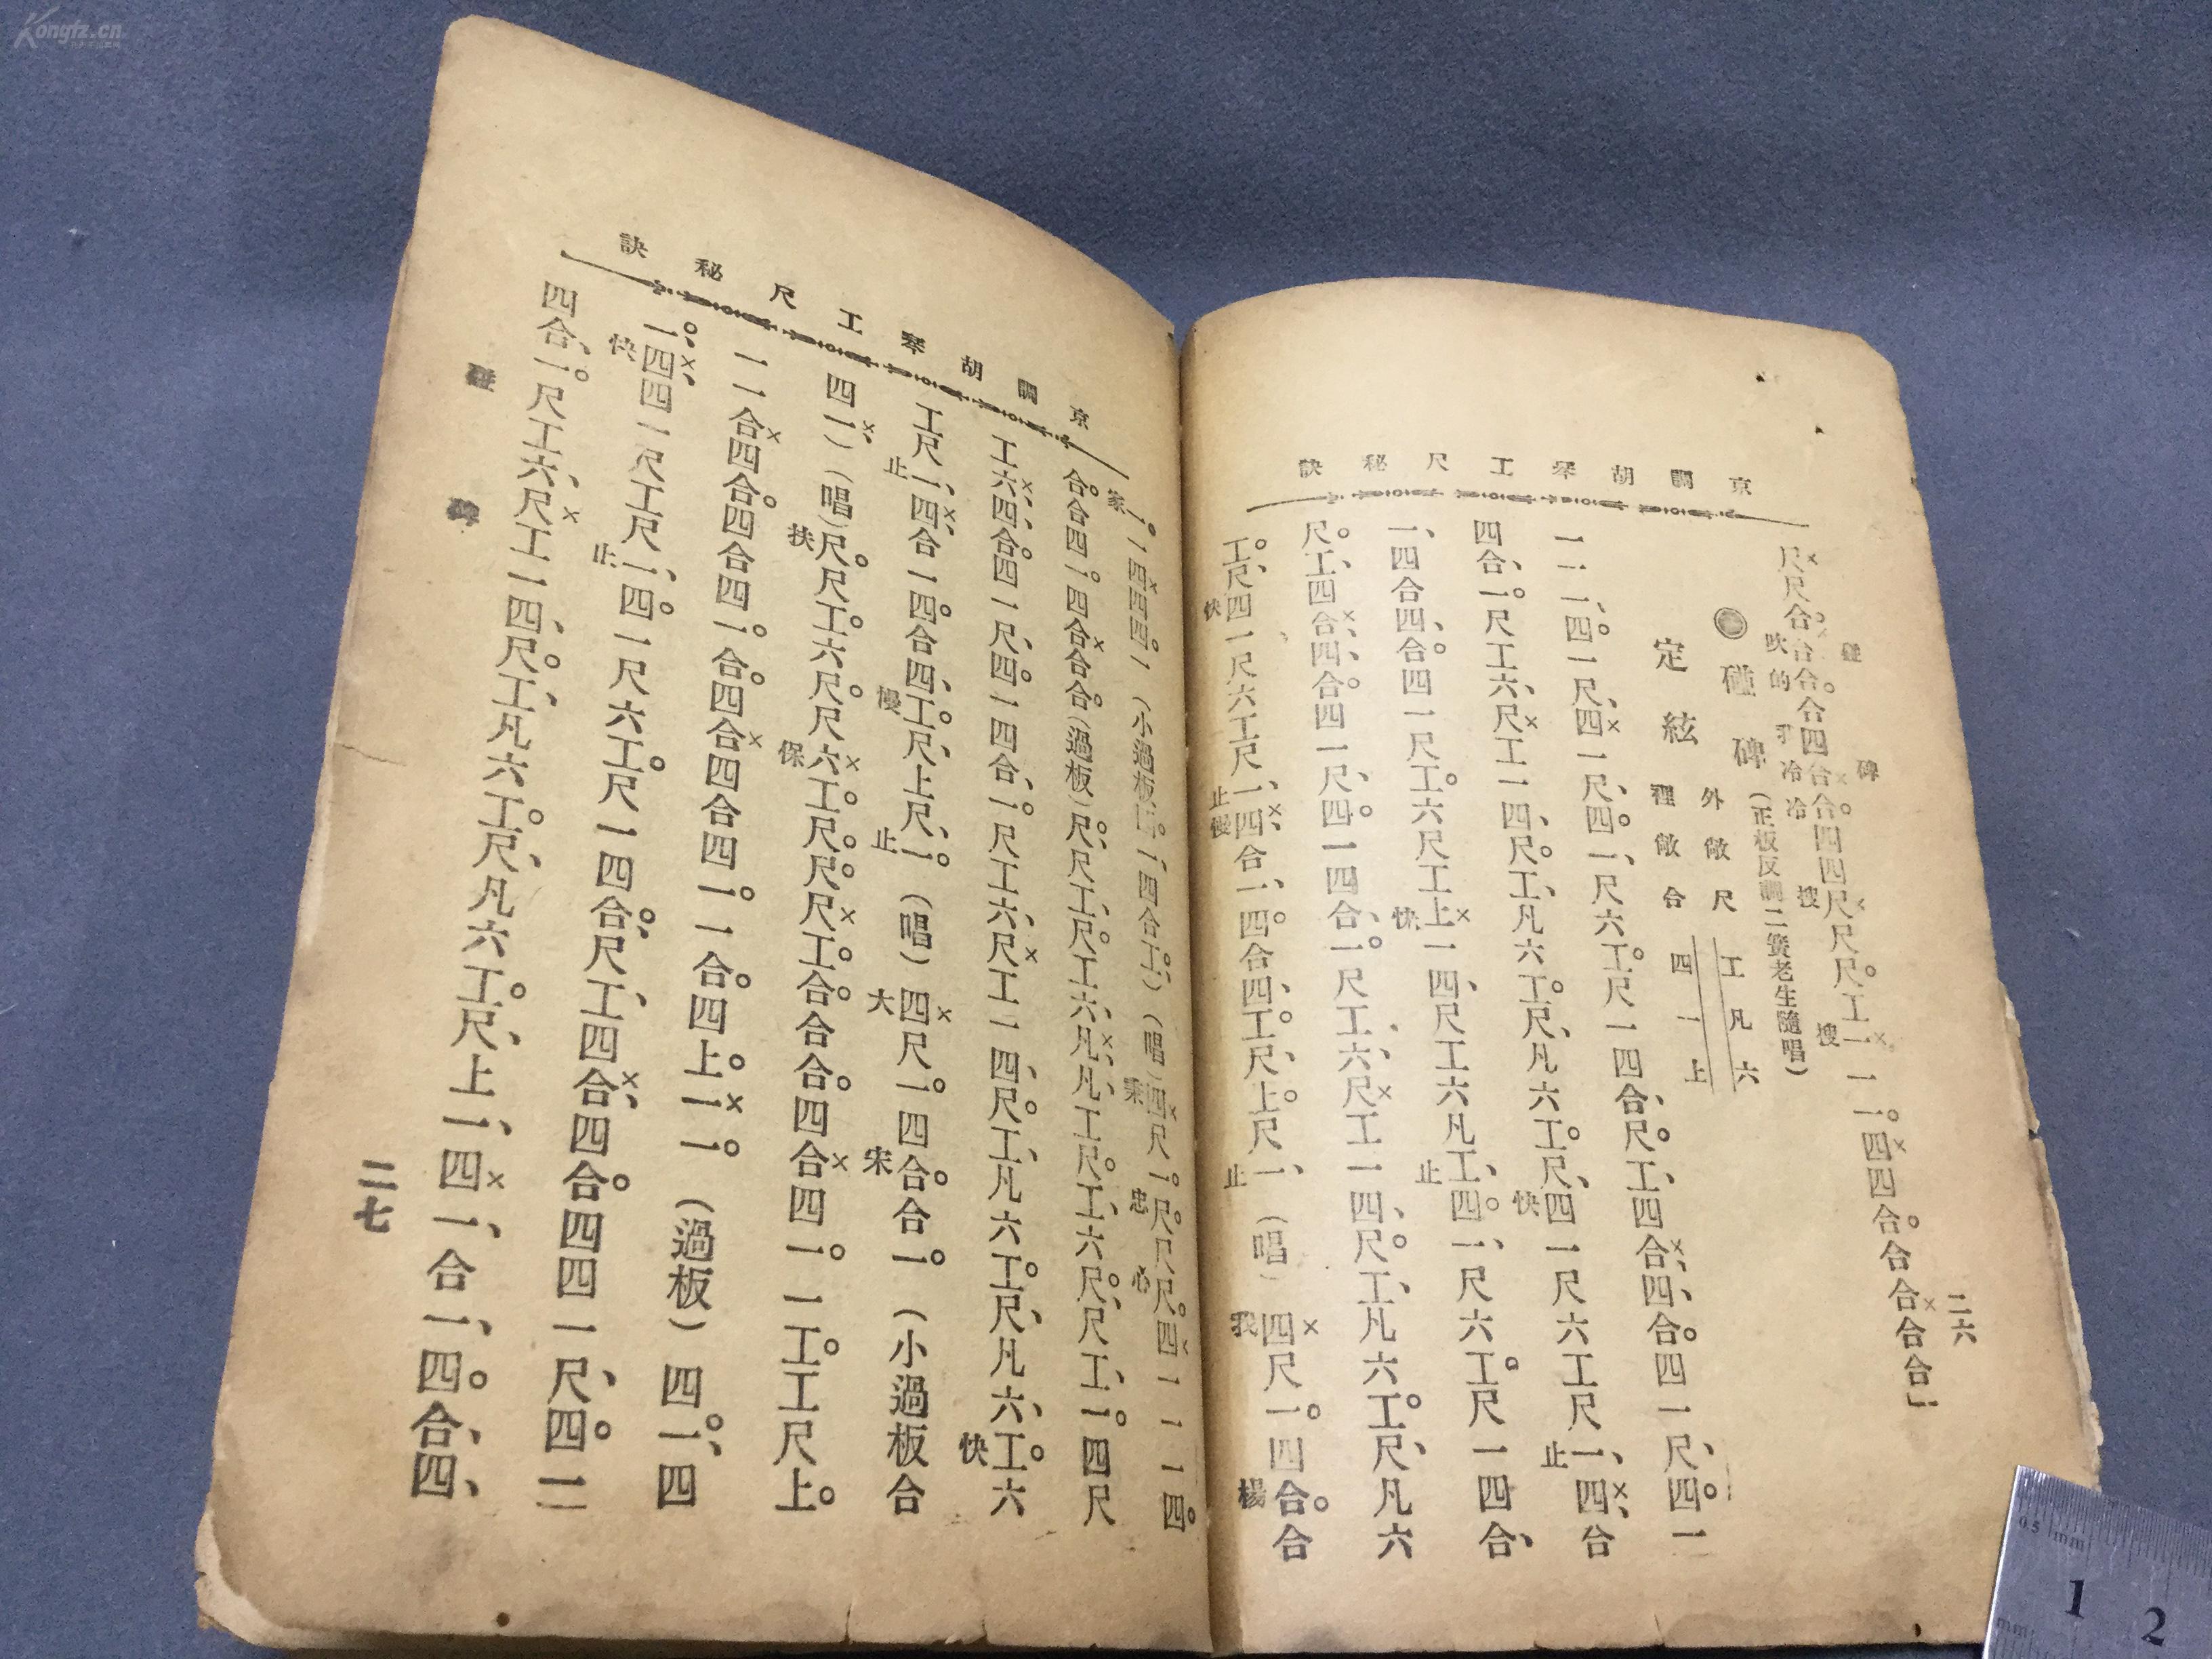 Kongfz.cn
京調胡琴工尺秘訣
碰碑
二六
尺尺合合合合四合合四四尺尺尺工一一一四四合合合合合」
吹的 冷冷 搜 搜
碰碑(正板反調二簧老生隨唱)
定絃
外敞尺 工凡六
裡敞合 四一上
一一一、四一尺、四一尺、四一、尺六工尺一四合、尺工、四合、四、合四一尺、四一
四合、一尺工六、尺工一四、尺工、凡六工尺、凡六工尺、四一尺六工尺一、四、合
快 止
一、四合四、合四一尺工六尺工上一四、尺工六凡工、四一、尺六工尺一四合、
快 止
尺工、四合、四、合四一尺、四一四合、一尺工六、尺工一四、尺工、凡六工尺、凡六
工尺、四一尺六工尺、一四、合一、四合四、工尺、上尺一、(唱)四尺一四合合
快 止 慢 止 我 楊
京調胡琴工尺秘訣
家 宋 忠 心
合合四一四合合合(過板)尺、尺工、尺工六、凡、凡、工尺工六尺、尺工、一四尺
工六、四、合四一尺、四一四合、一尺工六、尺工一四、尺工、凡六工尺、凡六、工六
快
工尺一、四、合一四合四、工尺、上尺、一(唱)四尺一四合合一(小過板合
止 慢 止 大 宋
四一、)(唱)尺尺工六尺尺六工尺尺尺工合合合四合四一一工工尺上
扶 保
一一合四合四合四一合四合四合四一一合四上一一(過板)四一、四
一四、四一尺工尺一、四一尺六工尺一四合、尺工、四合、四合四四一尺、四一
快 止
四合、一尺工六、尺工一四、尺工、凡六工尺、凡六工尺、上一、四一、合一、四合、四、
碰碑
二七
1 2
0.5 mm
mm